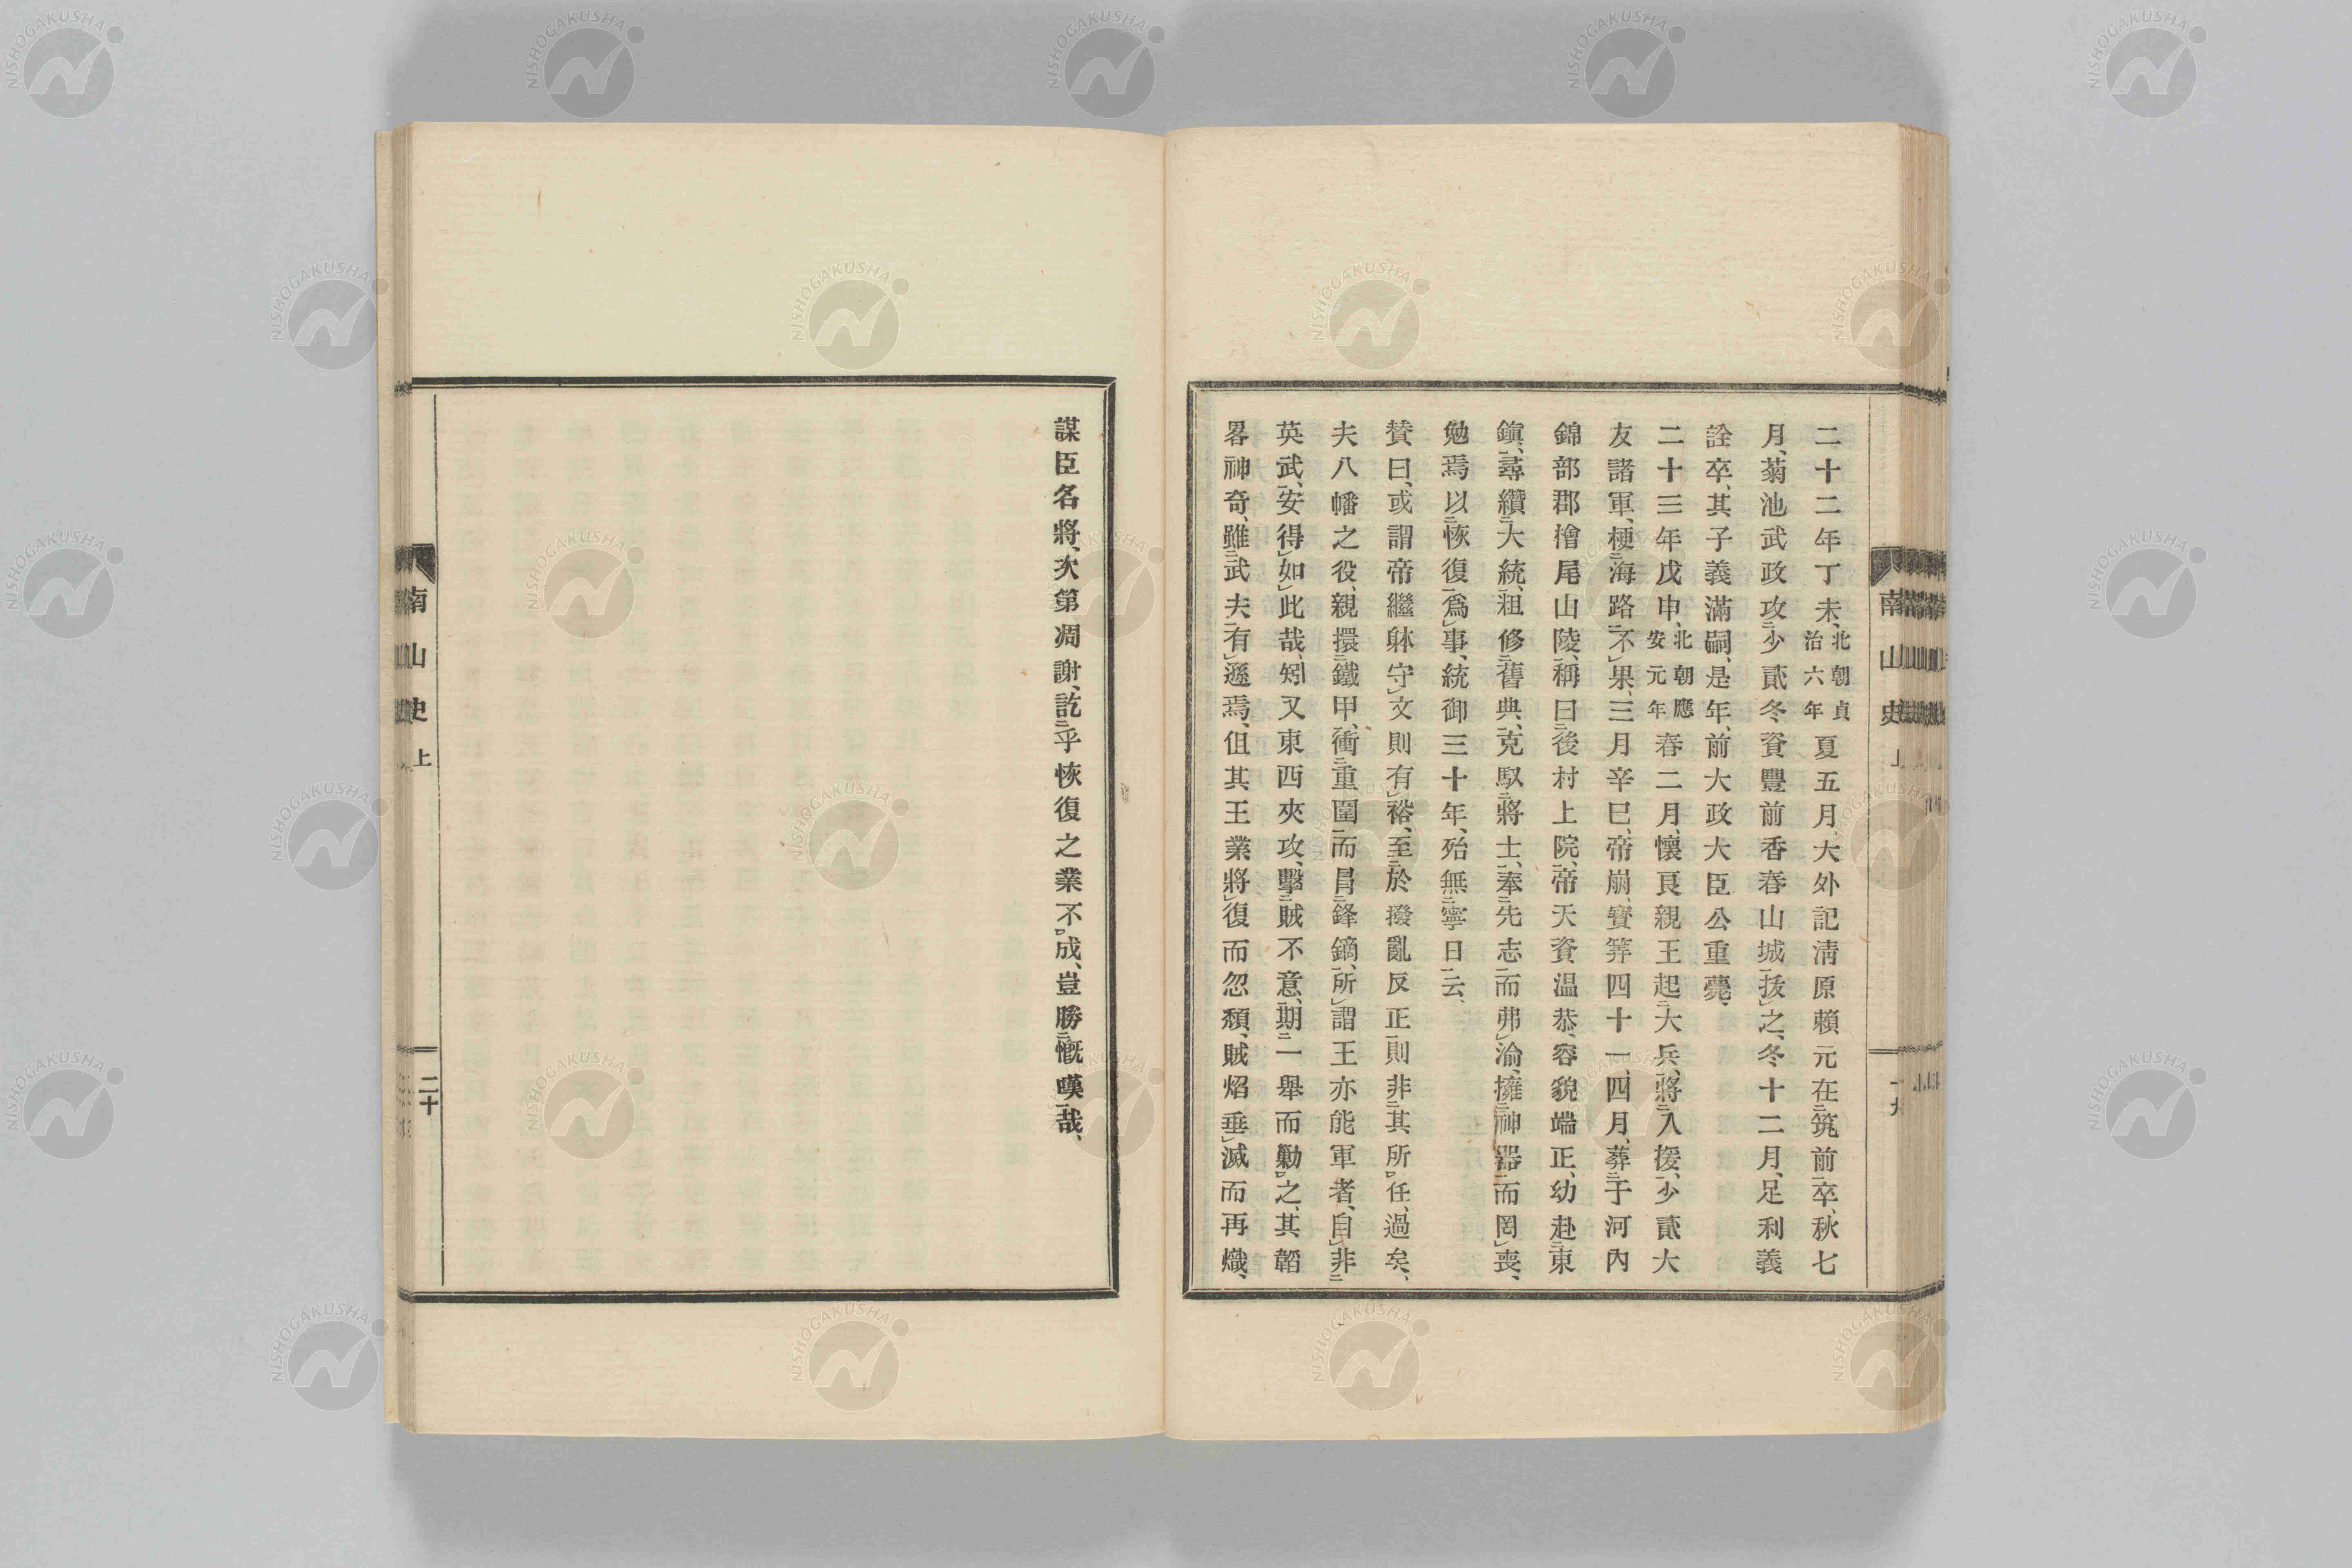 二十二年丁未、北朝貞治六年夏五月、大外記淸原賴元在筑前卒、秋七
月、菊池武政攻少貳冬資豐前香春山城拔之、冬十二月、足利義
詮卒、其子義滿嗣、是年、前大政大臣公重薨、
二十三年戊申、北朝應安元年春二月、懷良親王起大兵、將入援、少貳大
友諸軍、梗海路不果、三月辛巳、帝崩、寶筭四十一、四月、葬于河內
錦部郡檜尾山陵、稱曰後村上院、帝天資温恭、容貌端正、幼赴東
鎭、尋纘大統、粗修舊典、克馭將士、奉先志而弗渝、擁神器而罔喪、
勉焉以恢復爲事、統御三十年、殆無寧日云、
贊曰、或謂帝繼躰守文則有裕、至於撥亂反正則非其所任、過矣、
夫八幡之役、親擐鐵甲、衝重圍而冐鋒鏑、所謂王亦能軍者、自非
英武、安得如此哉、矧又東西夾攻、擊賊不意、期一舉而勦之、其韜
畧神奇、雖武夫有遜焉、伹其王業將復而忽頽、賊焰垂滅而再熾、
南山史 上
謀臣名將、次第凋謝、訖乎恢復之業不成、豈勝慨嘆哉、
南山史 上
二十
NISHOGAKUSHA